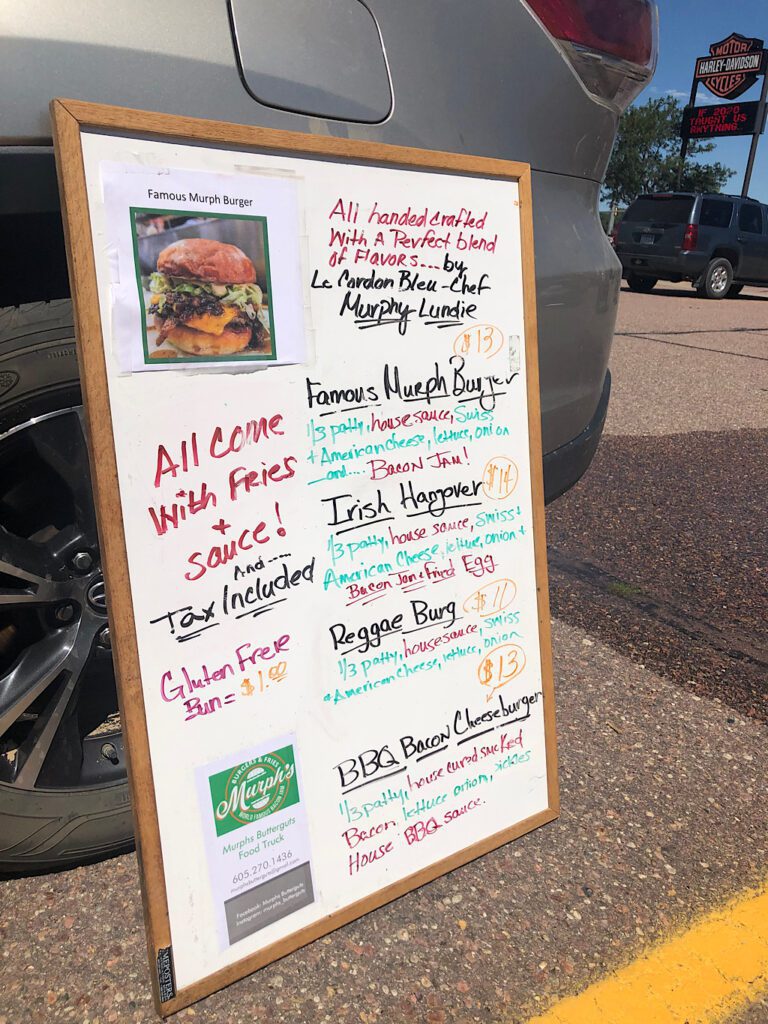 MOTOR
HARLEY-DAVIDSON
CYCLES
IF 2020
TAUGHT US
ANYTHING...
Famous Murph Burger
All handed crafted
With A Perfect blend
of Flavors... by
Le Cordon Bleu - Chef
Murphy Lundie
$13
Famous Murph Burger
1/3 patty, house sauce, Swiss
+ American Cheese, lettuce, onion
-and.... Bacon Jam!
$14
Irish Hangover
1/3 patty, house sauce, Swiss +
American Cheese, lettuce, onion +
Bacon Jam & Fried Egg
Reggae Burg $11
1/3 patty, house sauce, swiss
+ American Cheese, lettuce, onion
$13
BBQ Bacon Cheeseburger
1/3 patty, house cured smoked
Bacon, lettuce onion, pickles
House BBQ sauce.
All Come
With Fries
+
sauce!
And.....
Tax Included
Gluten Free
Bun = $1.00
BURGERS & FRIES
Murph's
WORLD FAMOUS BACON JAM
Murphs Butterguts
Food Truck
605.270.1436
murphsbutterguts@gmail.com
Facebook: Murphs Butterguts
Instagram: murphs_butterguts